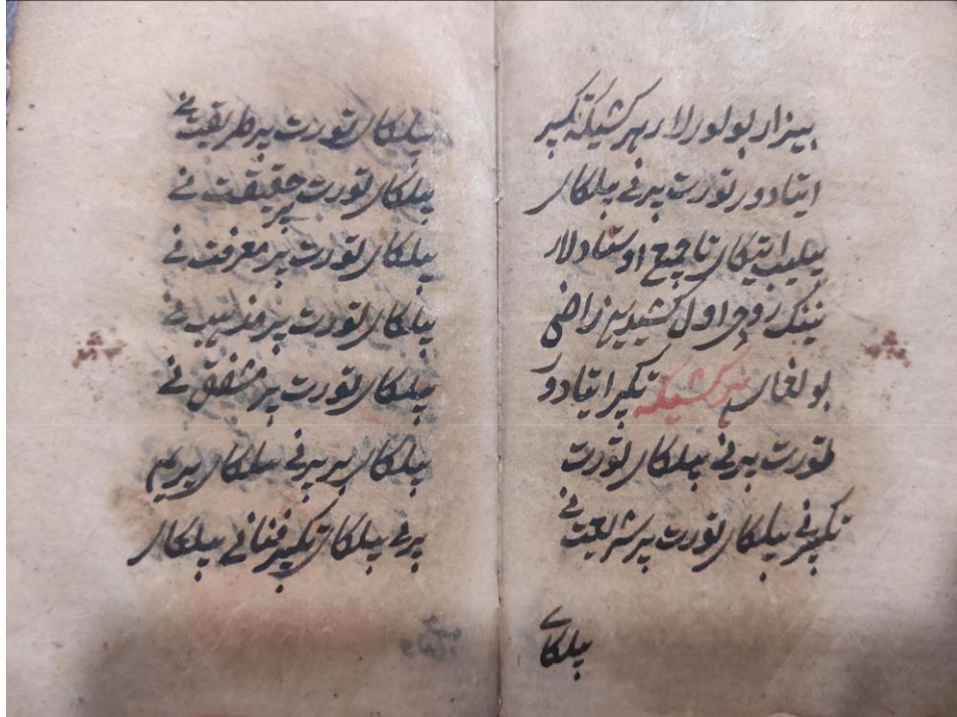 بیزار بولورلار هر کشیکه تکبیر
ایتادور تورت پیرنی بیلکای
بیلیب ایتیکای تا جمیع اوستادلار
نینک روحی اول کشیدین راضی
بولغای هر کشیکه تکبیر ایتادور
تورت پیرنی بیلکای تورت
تکبیرنی بیلکای تورت پیر شریعت نی
بیلکای
بیلکای تورت پیر طریقت نی
بیلکای تورت پیر حقیقت نی
بیلکای تورت پیر معرفت نی
بیلکای تورت پیر مذهب نی
بیلکای تورت پیر مشفق نی
بیلکای پیر پیرنی بیلکای پیریم
پیرنی بیلکای تکبیر فنانی بیلکای